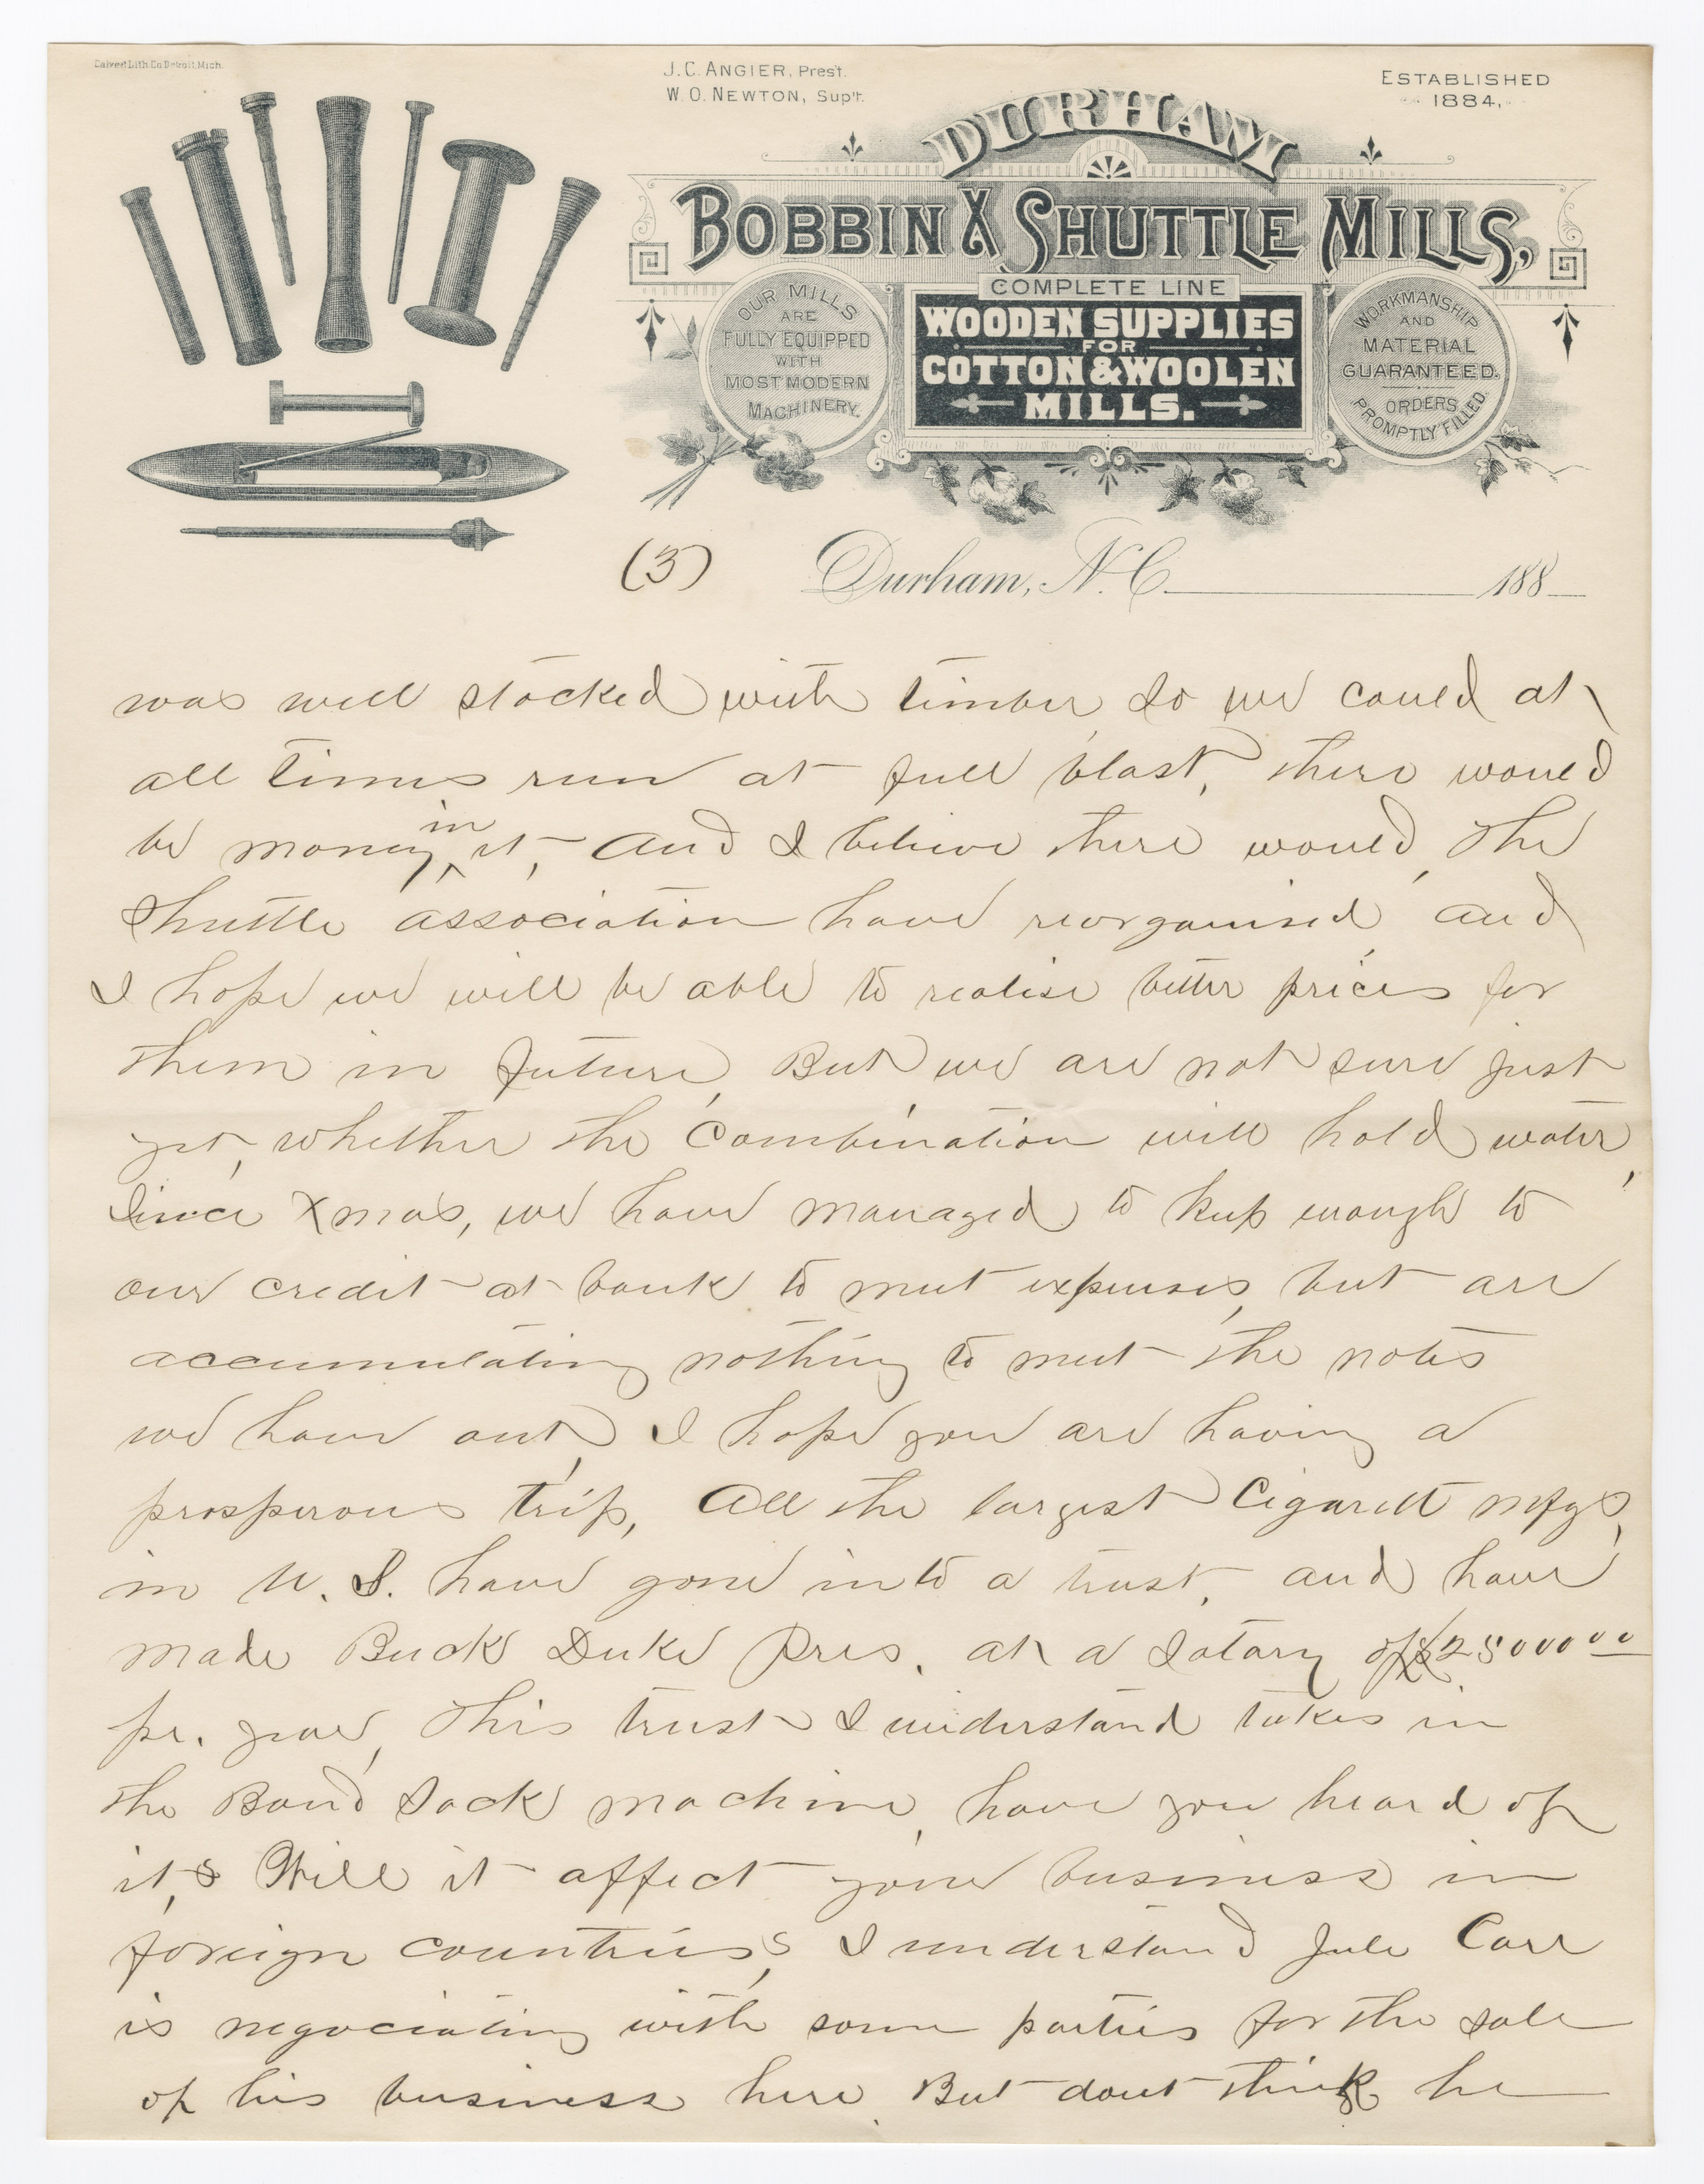 Calvert Lith. Co. Detroit, Mich.
J. C. ANGIER, Prest.
W. O. NEWTON, Sup't.
ESTABLISHED
1884,
DURHAM
BOBBIN & SHUTTLE MILLS,
COMPLETE LINE
WOODEN SUPPLIES
FOR
COTTON & WOOLEN
MILLS.
OUR MILLS
ARE
FULLY EQUIPPED
WITH
MOST MODERN
MACHINERY.
WORKMANSHIP
AND
MATERIAL
GUARANTEED.
ORDERS
PROMPTLY FILLED.
(3) Durham, N. C. 188
was well stocked with timber so we could at
all times run at full blast, there would
be money in it, and I believe there would, The
Shuttle association have reorganised, and
I hope we will be able to realise better prices for
them in future, But we are not sure just
yet, whether the Combination will hold water,
Since Xmas, we have managed to keep enough to
our credit at bank to meet expenses, but are
accumulating nothing to meet the notes
we have out, I hope you are having a
prosperous trip, All the largest Cigarett mfgs,
in U. S. have gone into a trust, and have
made Buck Duke Pres. at a salary of $25000.00
pr. year, This trust I understand takes in
the Band Sack machine, have you heard of
it, & Will it affect your business in
foreign countries, I understand Jule Carr
is negociating with some parties for the sale
of his business here, But dont think he